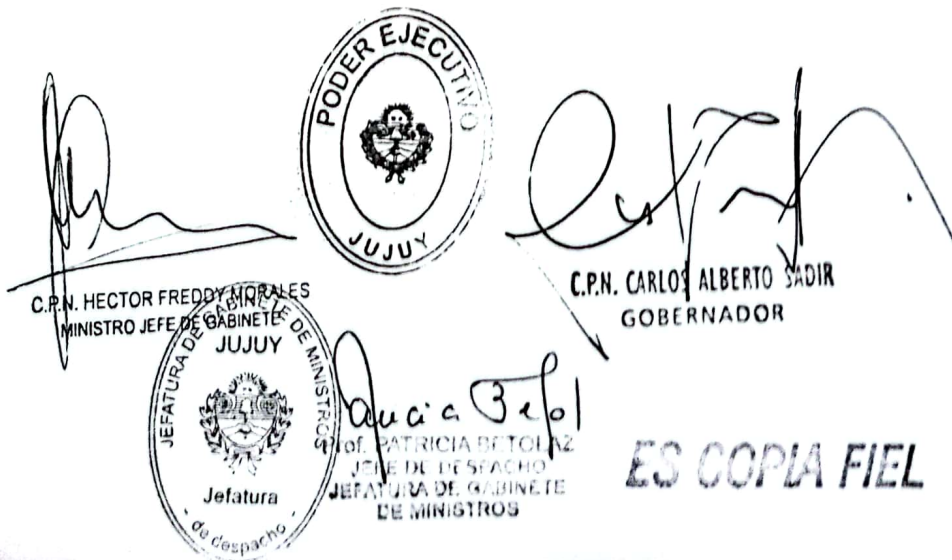 PODER EJECUTIVO
JUJUY
C.P.N. HECTOR FREDDY MORALES
MINISTRO JEFE DE GABINETE
C.P.N. CARLOS ALBERTO SADIR
GOBERNADOR
JEFATURA DE GABINETE DE MINISTROS
JUJUY
Jefatura
- de despacho -
Prof. PATRICIA BETOLAZ
JEFE DE DESPACHO
JEFATURA DE GABINETE
DE MINISTROS
ES COPIA FIEL